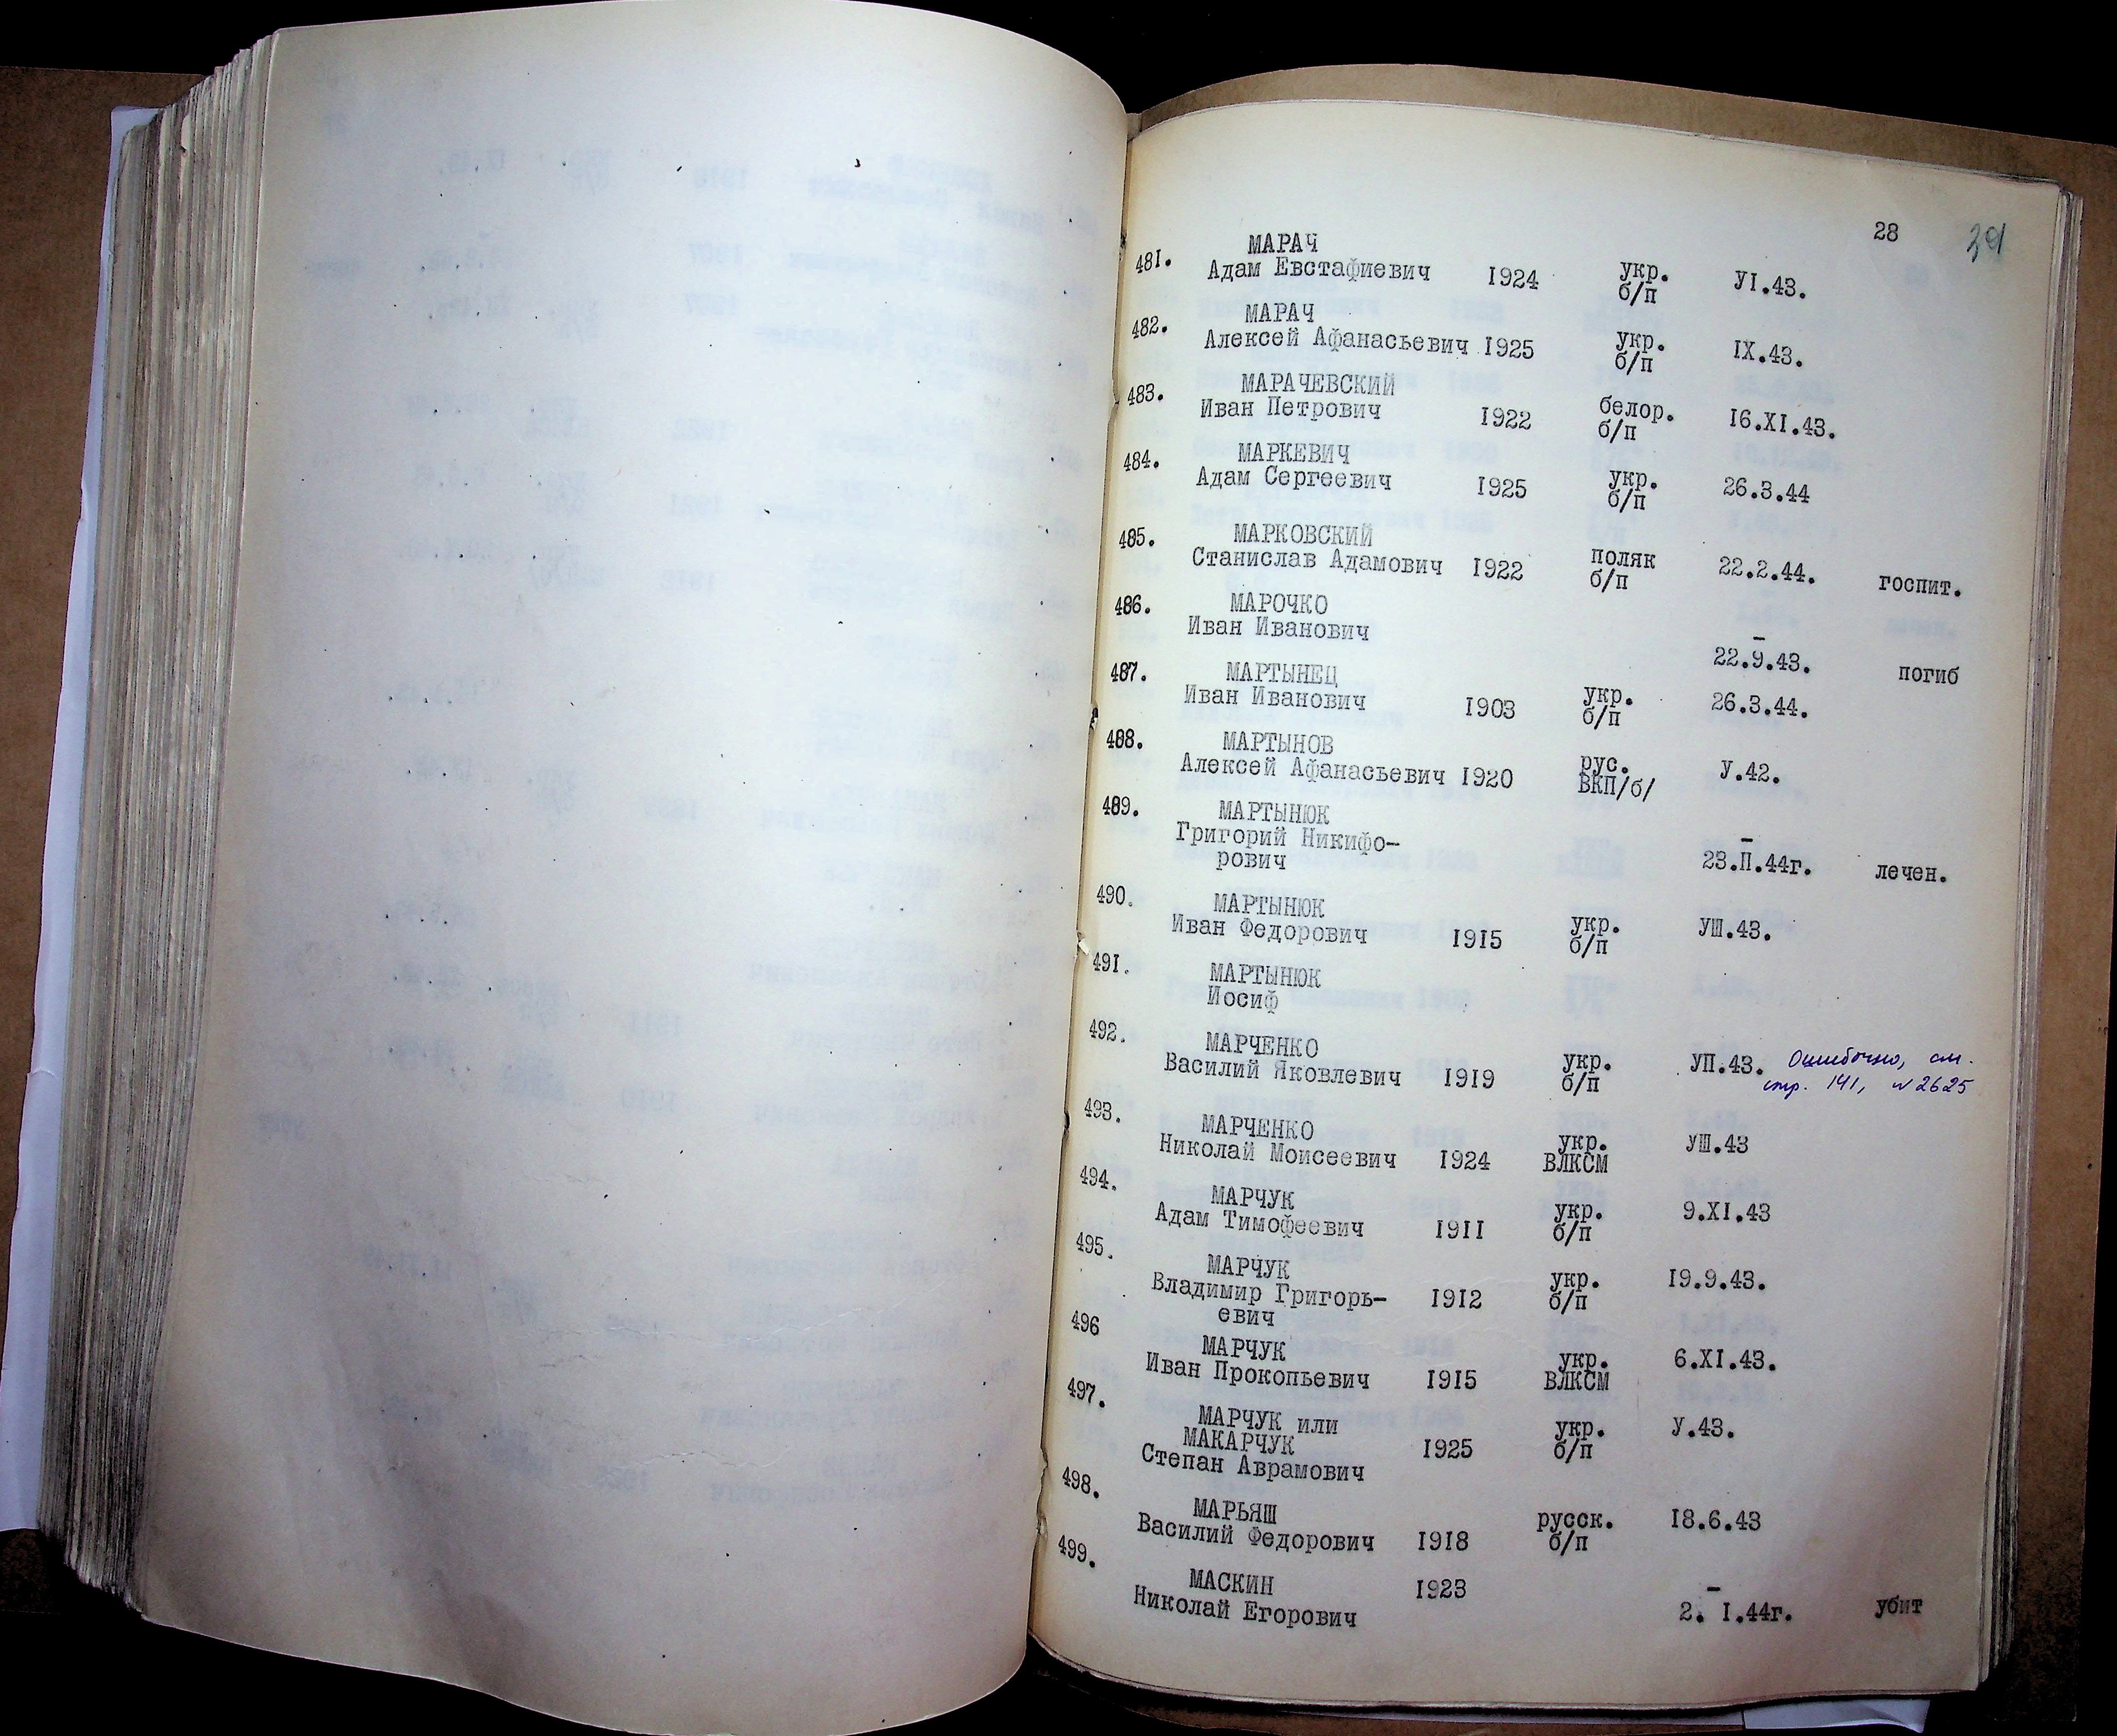 28 39
481. МАРАЧ
Адам Евстафиевич 1924 укр. УI.43.
б/п
482. МАРАЧ
Алексей Афанасьевич 1925 укр. IX.43.
б/п
483. МАРАЧЕВСКИЙ
Иван Петрович 1922 белор. 16.XI.43.
б/п
484. МАРКЕВИЧ
Адам Сергеевич 1925 укр. 26.3.44
б/п
485. МАРКОВСКИЙ
Станислав Адамович 1922 поляк 22.2.44. госпит.
б/п
486. МАРОЧКО
Иван Иванович
–
22.9.43. погиб
487. МАРТЫНЕЦ
Иван Иванович 1903 укр. 26.3.44.
б/п
488. МАРТЫНОВ
Алексей Афанасьевич 1920 рус. У.42.
ВКП/б/
489. МАРТЫНЮК
Григорий Никифо- –
рович 23.П.44г. лечен.
490. МАРТЫНЮК
Иван Федорович 1915 укр. УШ.43.
б/п
491. МАРТЫНЮК
Иосиф
492. МАРЧЕНКО
Василий Яковлевич 1919 укр. УП.43. Ошибочно, см.
б/п стр. 141, №2625
493. МАРЧЕНКО
Николай Моисеевич 1924 укр. УШ.43
ВЛКСМ
494. МАРЧУК
Адам Тимофеевич 1911 укр. 9.XI.43
б/п
495. МАРЧУК
Владимир Григорь- 1912 укр. 19.9.43.
евич б/п
496 МАРЧУК
Иван Прокопьевич 1915 укр. 6.XI.43.
ВЛКСМ
497. МАРЧУК или
МАКАРЧУК 1925 укр. У.43.
Степан Аврамович б/п
498. МАРЬЯШ
Василий Федорович 1918 русск. 18.6.43
б/п
499. МАСКИН 1923 –
Николай Егорович 2. I.44г. убит